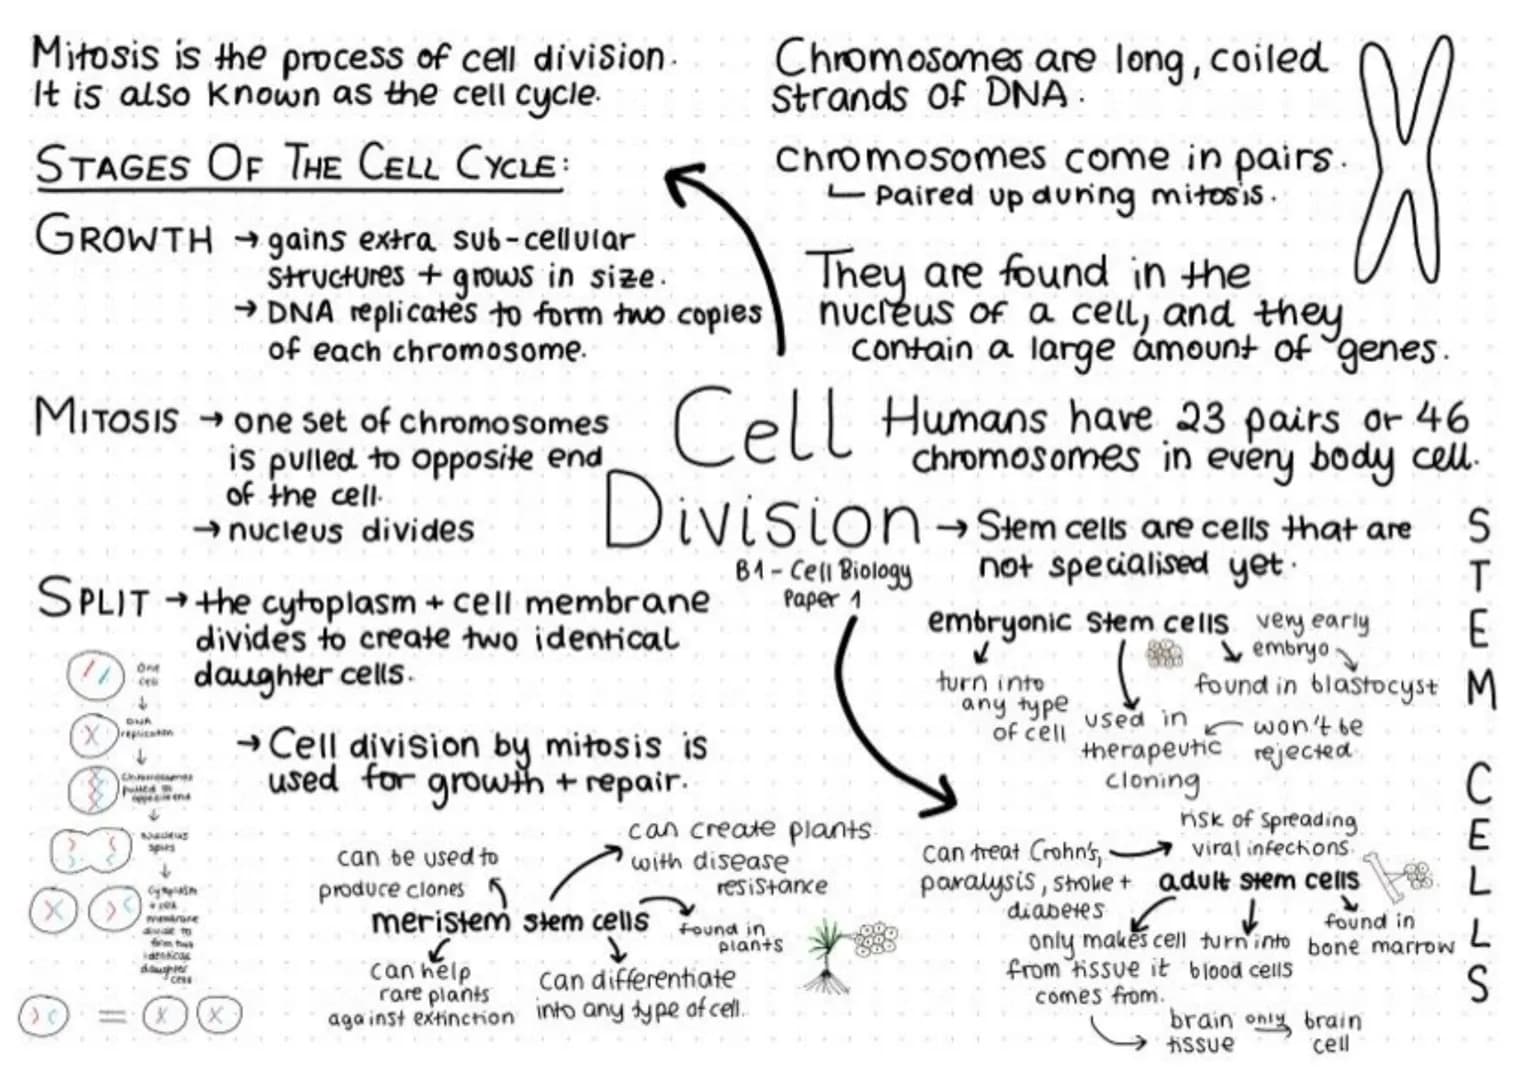 Mitosis is the process of cell division.
It is also known as the cell cycle.
STAGES OF THE CELL CYCLE:
GROWTH → gains extra sub-cellular
structures + grows in size.
→ DNA replicates to form two copies
of each chromosome.
MITOSIS → one set of chromosomes
is pulled to opposite end
of the cell.
→ nucleus divides
SPLIT → the cytoplasm + cell membrane
divides to create two identical
daughter cells.
→ Cell division by mitosis is
used for growth + repair.
One
cell
DNA
replication
Chromosomes
pulled to
opposite end
Nucleus
splits
Cytoplasm
+ cell
membrane
divide to
form two
identical
daughter
cells
=
Chromosomes are long, coiled
strands of DNA.
Chromosomes come in pairs.
Paired up during mitosis.
They are found in the
nucleus of a cell, and they
contain a large amount of genes.
Humans have 23 pairs or 46
chromosomes in every body cell.
Cell
Division
B1 - Cell Biology
Paper 1
→ Stem cells are cells that are
not specialised yet.
STEM CELLS
embryonic stem cells
very early
embryo
found in blastocyst
turn into
any type
of cell
used in
therapeutic
cloning
won't be
rejected
can treat Crohn's,
paralysis, stroke +
diabetes
risk of spreading
viral infections.
adult stem cells
found in
bone marrow
only makes cell
from tissue it
comes from.
turn into
blood cells
brain
tissue
only
brain
cell
can be used to
produce clones
can create plants
with disease
resistance
meristem stem cells
found in
plants
can help
rare plants
against extinction
can differentiate
into any type of cell.